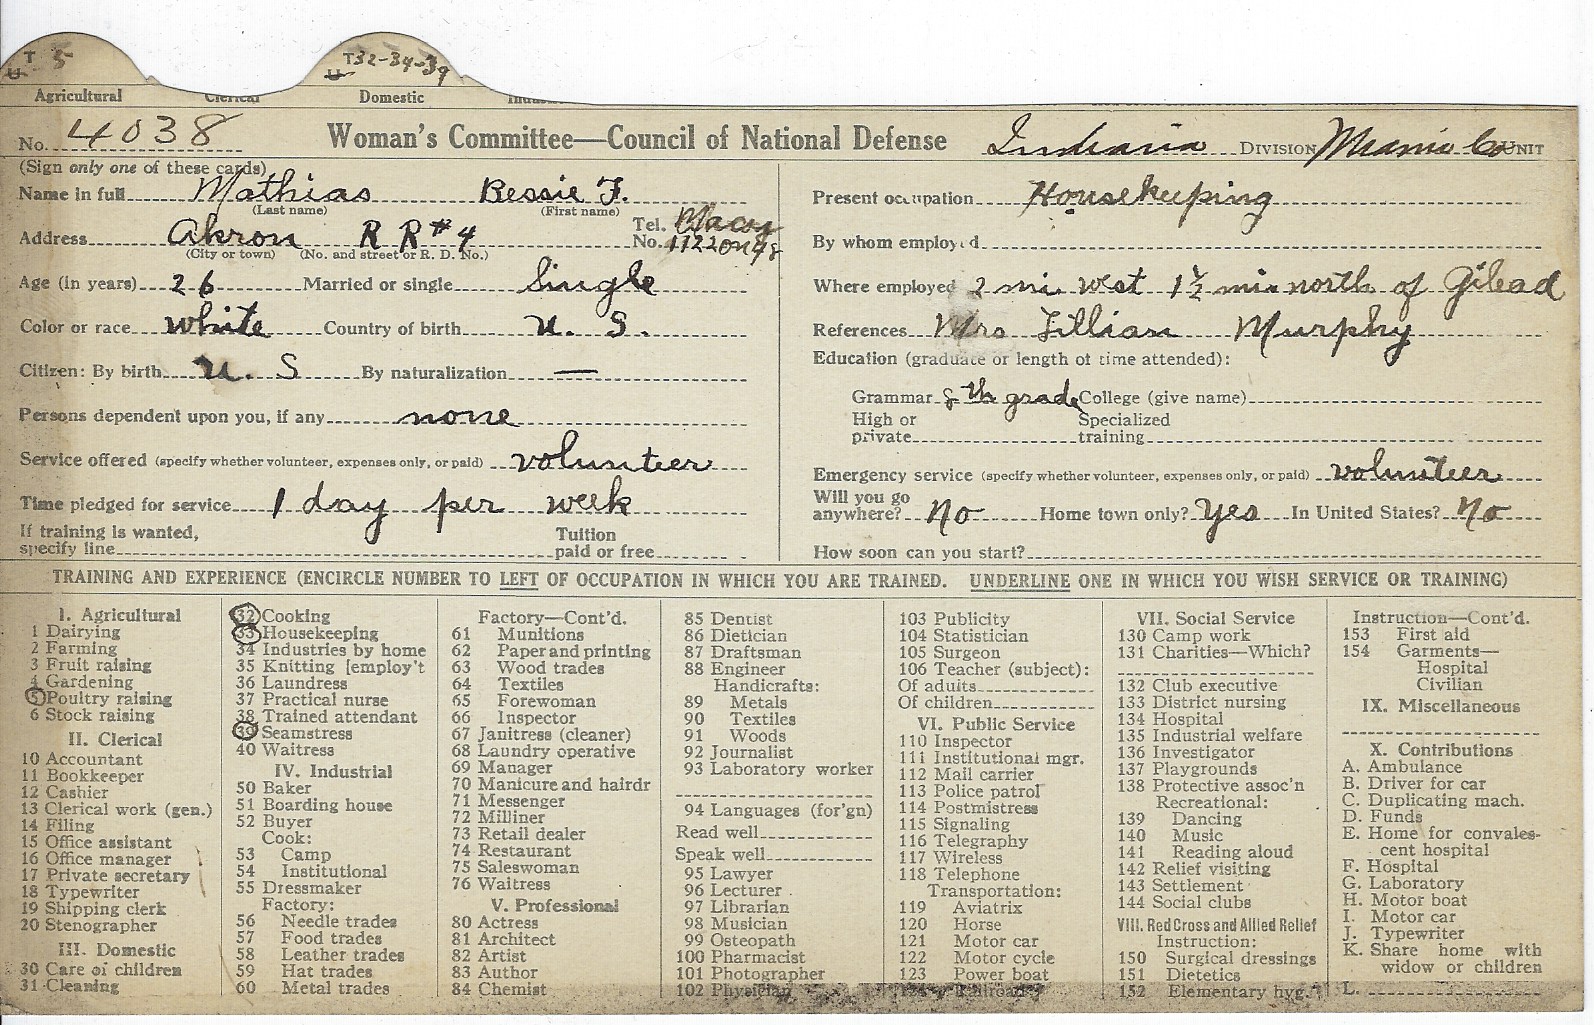 T 5 T32-34-39
U U
Agricultural Clerical Domestic
No. 4038 Woman's Committee—Council of National Defense Indiana DIVISION Miami Co UNIT
(Sign only one of these cards)
Name in full Mathias Bessie F.
(Last name) (First name)
Address Akron R R #4 Tel. No. Macy
(City or town) (No. and street or R. D. No.)
Age (in years) 26 Married or single Single
Color or race White Country of birth U. S.
Citizen: By birth U. S By naturalization —
Persons dependent upon you, if any none
Service offered (specify whether volunteer, expenses only, or paid) volunteer
Time pledged for service 1 day per week
If training is wanted, Tuition
specify line paid or free
Present occupation Housekeeping
By whom employed
Where employed 2 mi west 1½ mi north of Gilead
References Mrs Lillian Murphy
Education (graduate or length of time attended):
Grammar 8th grade College (give name)
High or Specialized
private training
Emergency service (specify whether volunteer, expenses only, or paid) volunteer
Will you go
anywhere? No Home town only? Yes In United States? No
How soon can you start?
TRAINING AND EXPERIENCE (ENCIRCLE NUMBER TO LEFT OF OCCUPATION IN WHICH YOU ARE TRAINED. UNDERLINE ONE IN WHICH YOU WISH SERVICE OR TRAINING)
I. Agricultural
1 Dairying
2 Farming
3 Fruit raising
4 Gardening
5 Poultry raising
6 Stock raising
II. Clerical
10 Accountant
11 Bookkeeper
12 Cashier
13 Clerical work (gen.)
14 Filing
15 Office assistant
16 Office manager
17 Private secretary
18 Typewriter
19 Shipping clerk
20 Stenographer
III. Domestic
30 Care of children
31 Cleaning
32 Cooking
33 Housekeeping
34 Industries by home
35 Knitting [employ't
36 Laundress
37 Practical nurse
38 Trained attendant
39 Seamstress
40 Waitress
IV. Industrial
50 Baker
51 Boarding house
52 Buyer
Cook:
53 Camp
54 Institutional
55 Dressmaker
Factory:
56 Needle trades
57 Food trades
58 Leather trades
59 Hat trades
60 Metal trades
Factory—Cont'd.
61 Munitions
62 Paper and printing
63 Wood trades
64 Textiles
65 Forewoman
66 Inspector
67 Janitress (cleaner)
68 Laundry operative
69 Manager
70 Manicure and hairdr
71 Messenger
72 Milliner
73 Retail dealer
74 Restaurant
75 Saleswoman
76 Waitress
V. Professional
80 Actress
81 Architect
82 Artist
83 Author
84 Chemist
85 Dentist
86 Dietician
87 Draftsman
88 Engineer
Handicrafts:
89 Metals
90 Textiles
91 Woods
92 Journalist
93 Laboratory worker
94 Languages (for'gn)
Read well
Speak well
95 Lawyer
96 Lecturer
97 Librarian
98 Musician
99 Osteopath
100 Pharmacist
101 Photographer
102 Physician
103 Publicity
104 Statistician
105 Surgeon
106 Teacher (subject):
Of adults
Of children
VI. Public Service
110 Inspector
111 Institutional mgr.
112 Mail carrier
113 Police patrol
114 Postmistress
115 Signaling
116 Telegraphy
117 Wireless
118 Telephone
Transportation:
119 Aviatrix
120 Horse
121 Motor car
122 Motor cycle
123 Power boat
124 Railroad
VII. Social Service
130 Camp work
131 Charities—Which?
132 Club executive
133 District nursing
134 Hospital
135 Industrial welfare
136 Investigator
137 Playgrounds
138 Protective assoc'n
Recreational:
139 Dancing
140 Music
141 Reading aloud
142 Relief visiting
143 Settlement
144 Social clubs
VIII. Red Cross and Allied Relief
Instruction:
150 Surgical dressings
151 Dietetics
152 Elementary hyg.
Instruction—Cont'd.
153 First aid
154 Garments—
Hospital
Civilian
IX. Miscellaneous
X. Contributions
A. Ambulance
B. Driver for car
C. Duplicating mach.
D. Funds
E. Home for convales-
cent hospital
F. Hospital
G. Laboratory
H. Motor boat
I. Motor car
J. Typewriter
K. Share home with
widow or children
L.